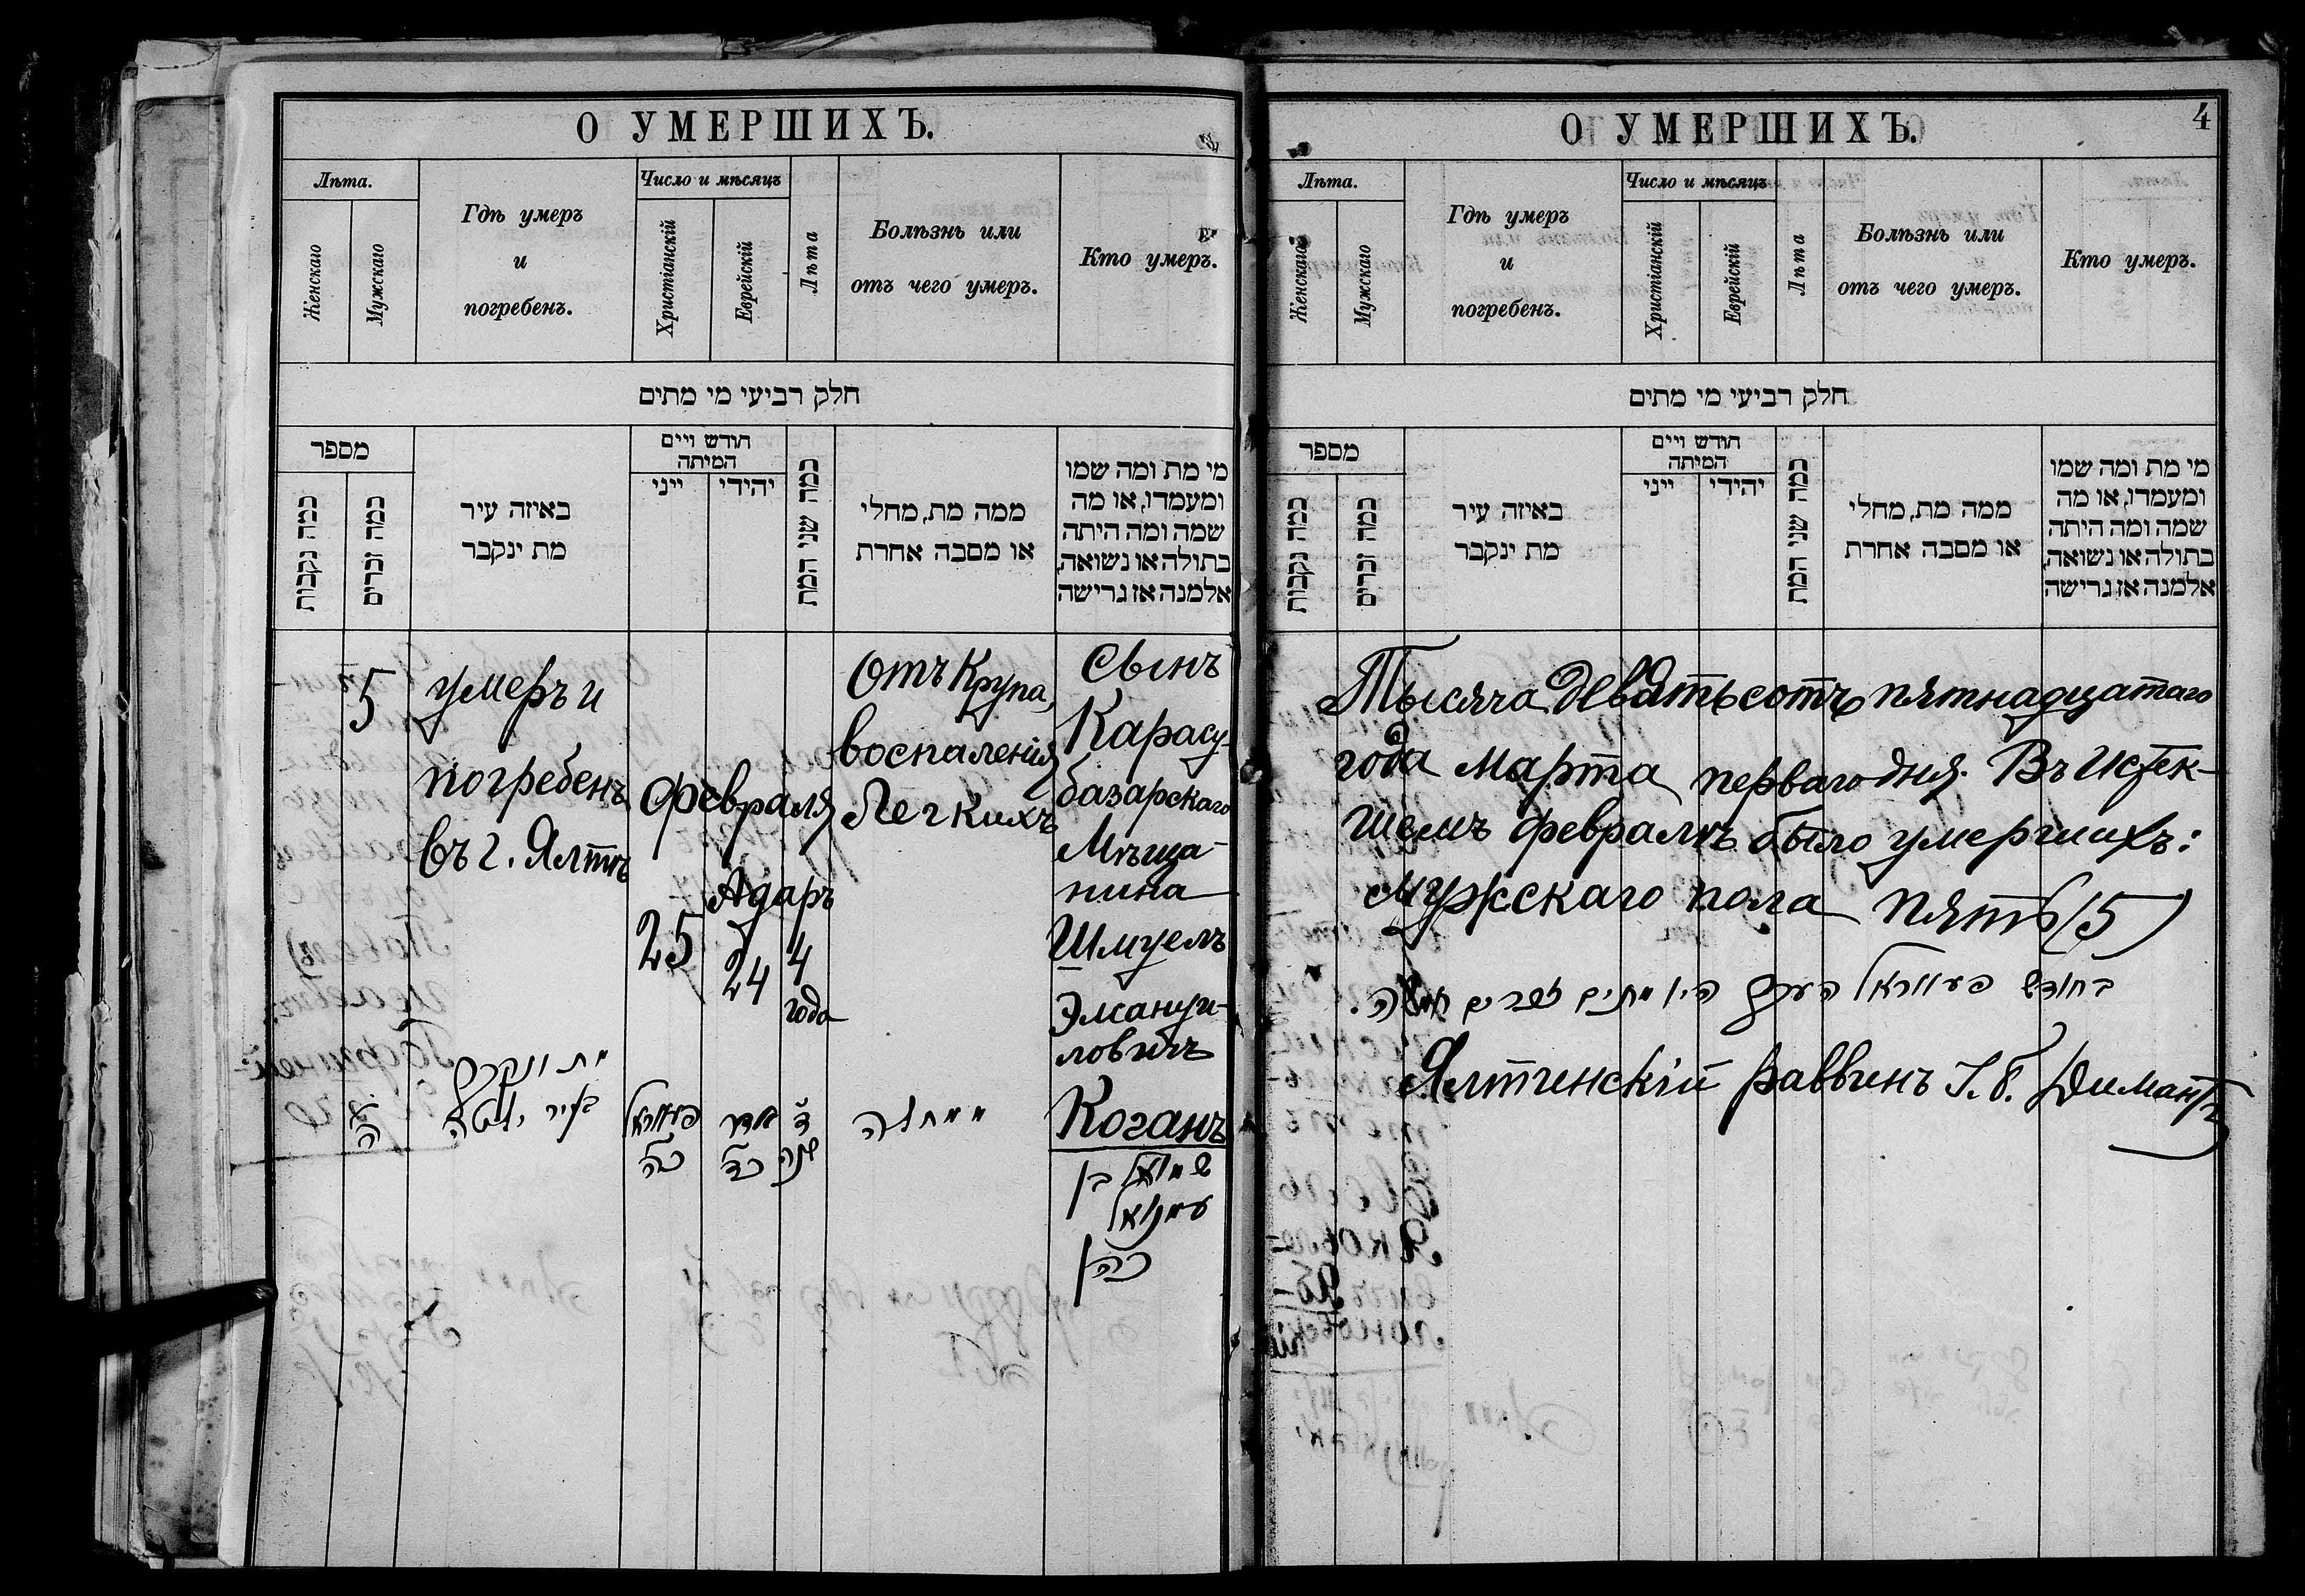 О УМЕРШИХЪ.
Лѣта.
Женскаго
Мужскаго
Гдѣ умеръ
и
погребенъ.
Число и мѣсяцъ
Христіанскій
Еврейскій
Лѣта
Болѣзнь или
отъ чего умеръ.
Кто умеръ.
חלק רביעי מי מתים
מספר
כמה נקבות
כמה זכרים
באיזה עיר
מת ינקבר
חודש ויים
המיתה
ייני
יהידי
כמה שני המת
ממה מת, מחלי
או מסבה אחרת
מי מת ומה שמו
ומעמדו, או מה
שמה ומה היתה
בתולה או נשואה,
אלמנה אז גרישה
5
умеръ и
погребенъ
въ г. Ялтѣ
Февраля
25
Адаръ
24
4
года
Отъ Крупа,
воспаленія
Легкихъ
Сынъ
Карасу-
базарскаго
Мѣща-
нина
Шмуелъ
Эмануи-
ловичъ
Коганъ
ה
מת ונקבר
בעיר יאלטא
פעווראל
כה
אדר
כד
ד
שנה
ממחלה
שמואל בן
עמנואל
כהן
О УМЕРШИХЪ.
4
Лѣта.
Женскаго
Мужскаго
Гдѣ умеръ
и
погребенъ.
Число и мѣсяцъ
Христіанскій
Еврейскій
Лѣта
Болѣзнь или
отъ чего умеръ.
Кто умеръ.
חלק רביעי מי מתים
מספר
כמה נקבות
כמה זכרים
באיזה עיר
מת ינקבר
חודש ויים
המיתה
ייני
יהידי
כמה שני המת
ממה מת, מחלי
או מסבה אחרת
מי מת ומה שמו
ומעמדו, או מה
שמה ומה היתה
בתולה או נשואה,
אלמנה אז גרישה
Тысяча девятьсотъ пятнадцатаго
года Марта перваго дня. Въ истек-
шемъ Февралѣ было умершихъ:
мужскаго пола пять (5)
בחודש פעווראל העבר היו מתים זכרים חמשה.
Ялтинскій раввинъ І. б. Димантъ